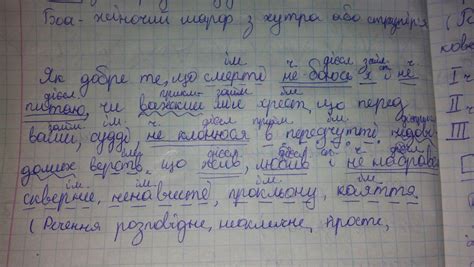 Боа - жіночий шарф з хутра або страусів
ім. ч. дієсл. займ.
Як добре те, що смерті не боюсь я і не
дієсл. прикм. займ. ім.
питаю, чи важкий мій хрест, що перед
займ. ім. ч. дієсл. прийм. ім.
вами, судді не клонюся в передчутті недові-
ім. дієсл. дієсл. сп. ч.
домих верств, що жив, любив і не набрався
ім. ім. ім. ім.
скверни, ненависті, прокльону, каяття
(Речення розповідне, неокличне, просте,
І
ІІ
ІІІ